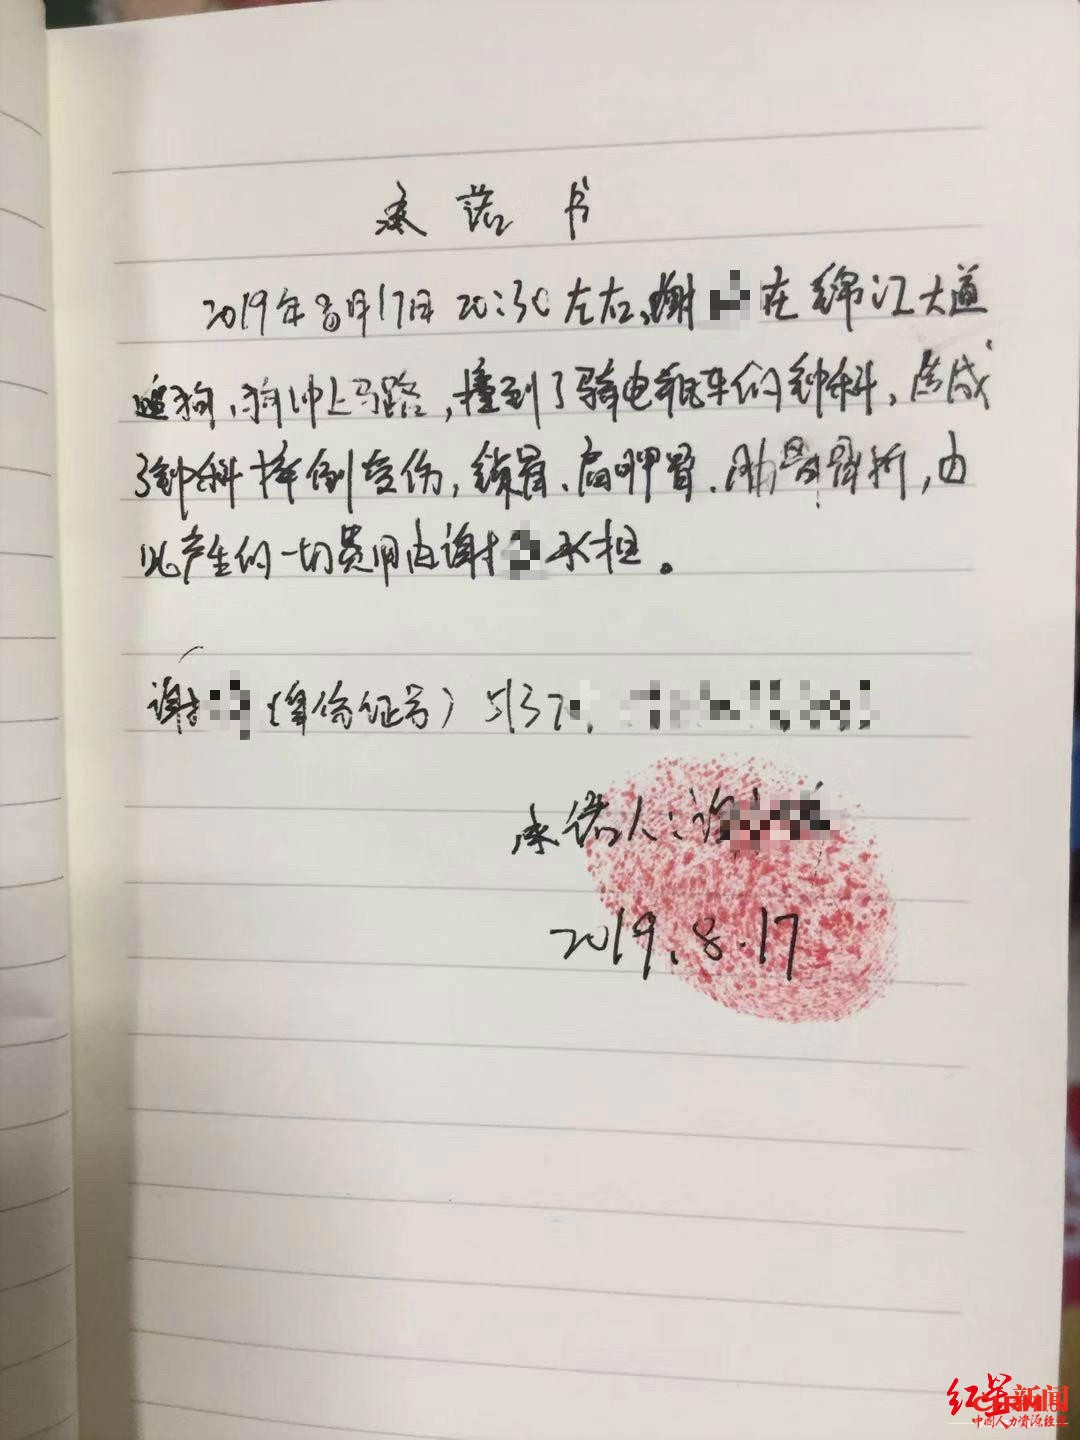 承诺书
2019年8月17日20:30左右,谢在绵江大道
遛狗,狗冲上马路,撞到了骑电瓶车的钟科,造成
了钟科摔倒受伤,锁骨、肩胛骨、肋骨骨折,由
此产生的一切费用由谢承担。
谢(身份证号)5137
承诺人:谢
2019.8.17
红星新闻
中国人力资源经理